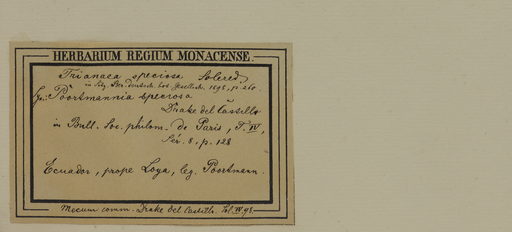 HERBARIUM REGIUM MONACENSE.
Trianaea speciosa Solered.
in Ber. deutsch. bot. Gesellsch. 1898, p. 260.
Poortmannia speciosa
Drake del Castillo
in Bull. Soc. philom. de Paris, T. IV,
Sér. 8, p. 128
Ecuador, prope Loja, leg. Poortmann.
Mecum comm. Drake del Castillo